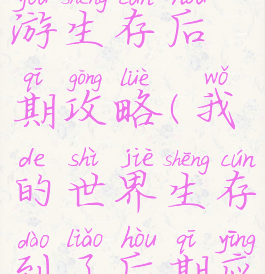 yóu shēng cún hòu
游生存后
qī gōng lüè wǒ
期攻略(我
de shì jiè shēng cún
的世界生存
dào liǎo hòu qī yīng
到了后期应